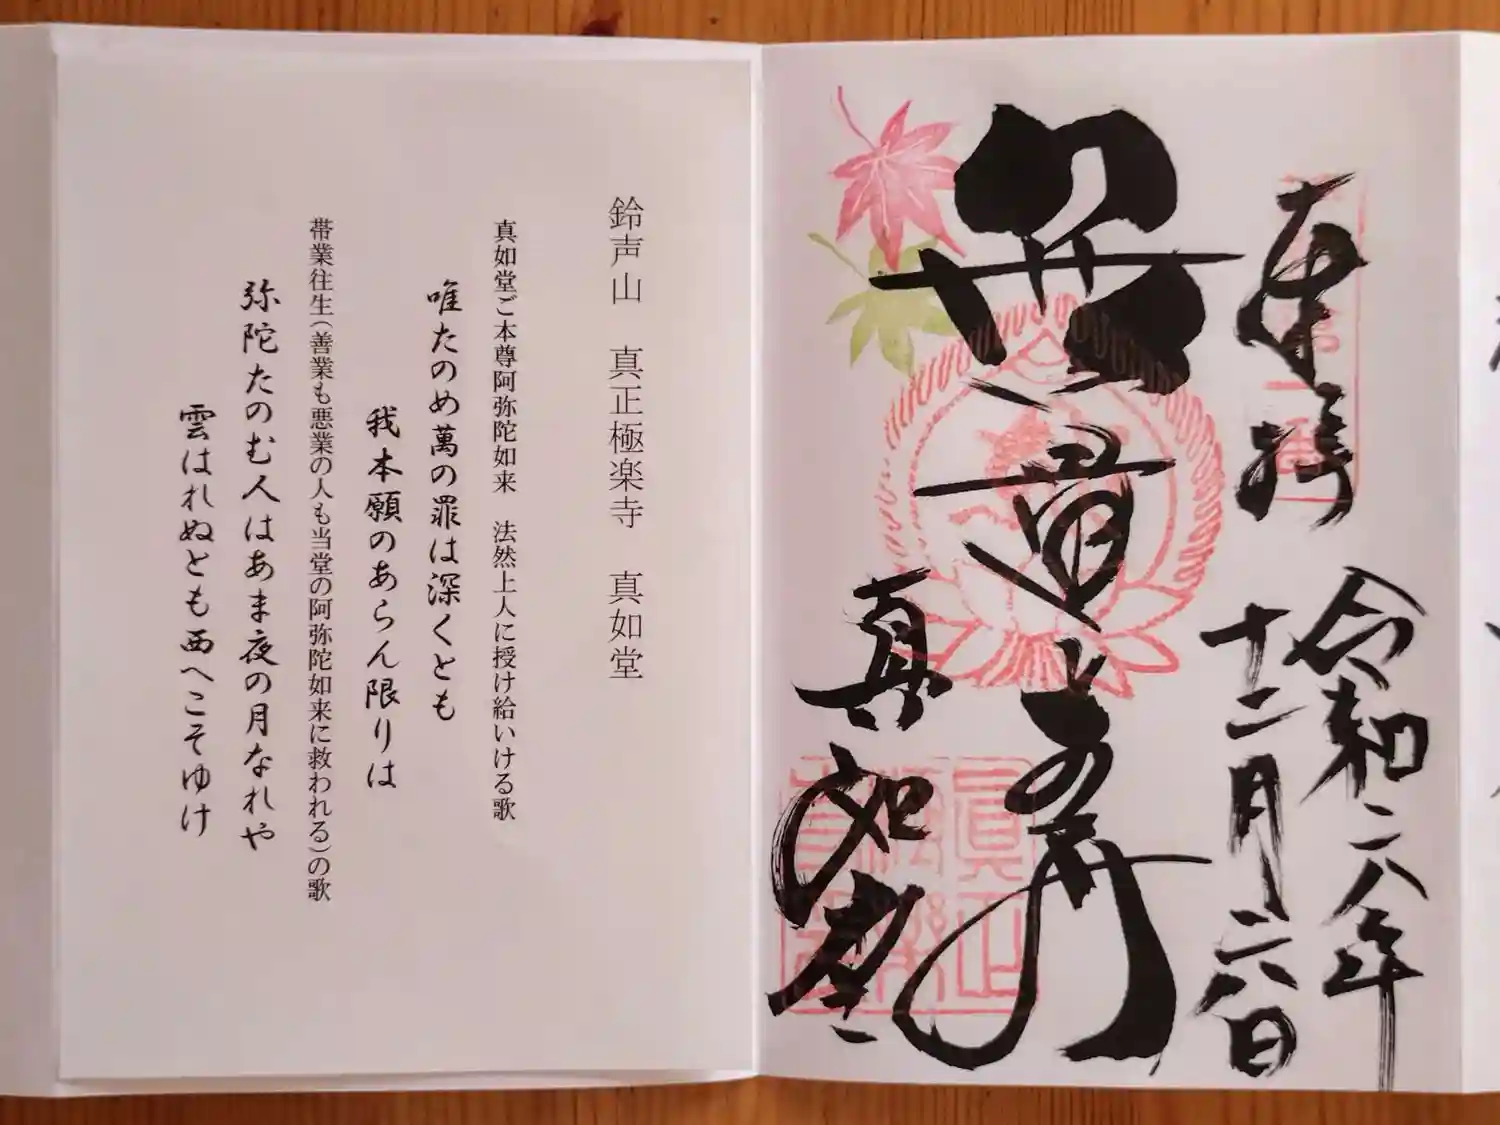 奉拝
令和六年
十二月六日
無量寿
真如堂
鈴声山 真正極楽寺 真如堂
真如堂ご本尊阿弥陀如来 法然上人に授け給いける歌
唯たのめ萬の罪は深くとも
我本願のあらん限りは
帯業往生(善業も悪業の人も当堂の阿弥陀如来に救われる)の歌
弥陀たのむ人はあま夜の月なれや
雲はれぬとも西へこそゆけ